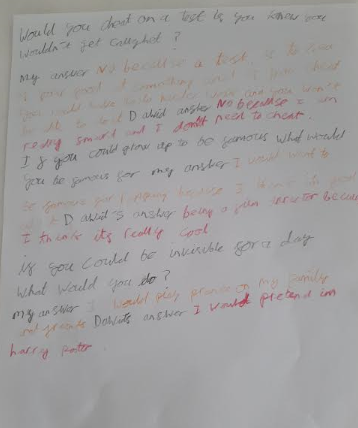 Would you cheat on a test if you knew you
wouldn't get caught?
my answer No because a test is to see
if your good at something and if you cheat
you would have to be and you won't
be able to do it Dawid answer No because I am
really smart and I don't need to cheat.
If you could grow up to be famous what would
you be famous for my answer I would want to
be famous for because I think I'm good
at it Dawid's answer being a film because
I think it's really cool
if you could be invisible for a day
What would you do?
my answer I would play pranks on my family
and friends Dawids answer I would pretend im
harry poter.